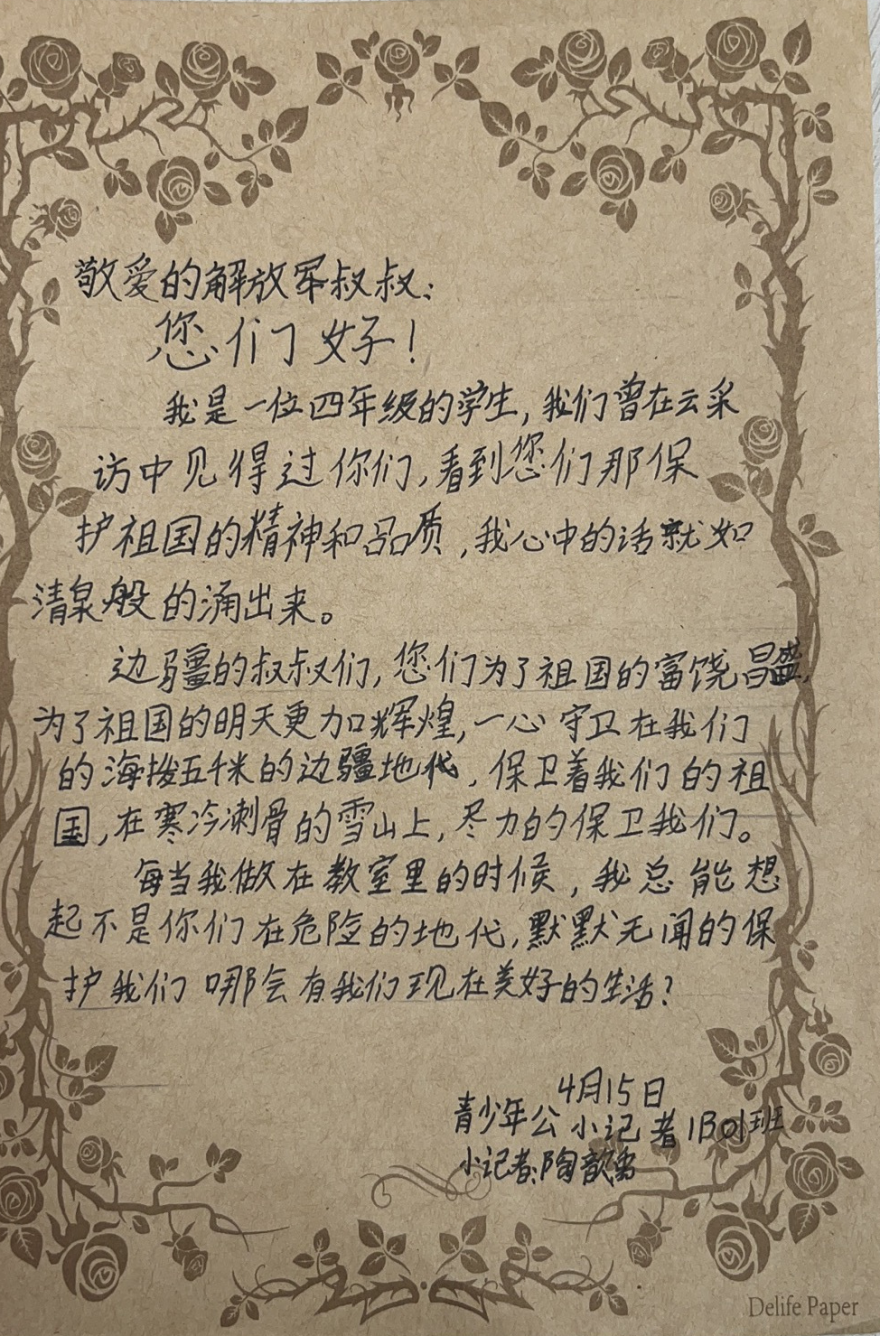 敬爱的解放军叔叔：
您们好！
我是一位四年级的学生，我们曾在云采
访中见得过你们，看到您们那保
护祖国的精神和品质，我心中的话就如
清泉般的涌出来。
边疆的叔叔们，您们为了祖国的富饶昌盛，
为了祖国的明天更加辉煌，一心守卫在我们
的海拨五千米的边疆地代，保卫着我们的祖
国，在寒冷刺骨的雪山上，尽力的保卫我们。
每当我做在教室里的时候，我总能想
起不是你们在危险的地代，默默无闻的保
护我们哪会有我们现在美好的生活？
4月15日
青少年公小记者1B01班
小记者：陶歆
Delife Paper